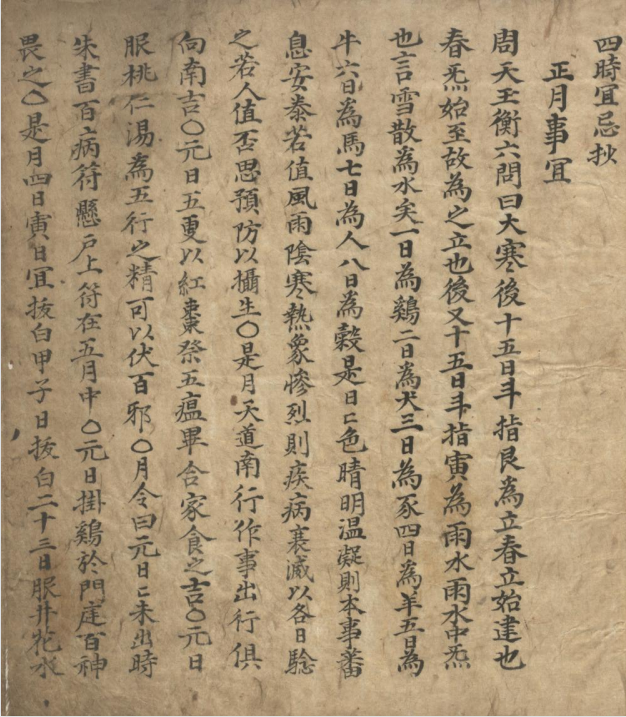 四時宜忌抄
正月事宜
周天玉衡六間曰大寒後十五日斗指艮為立春立始建也
春炁始至故為之立也後又十五日斗指寅為雨水雨水中炁
也言雪散為水矣一日為鷄二日為犬三日為豕四日為羊五日為
牛六日為馬七日為人八日為穀是日〻色晴明温凝則本事蕃
息安泰若值風雨陰寒熱象慘烈則疾病衰减以各日驗
之若人值否思預防以攝生〇是月天道南行作事出行俱
向南吉〇元日五更以紅棗祭五瘟畢合家食之吉〇元日
服桃仁湯為五行之精可以伏百邪〇月令曰元日〻未出時
朱書百病符懸戶上符在五月中〇元日掛鷄於門庭百神
畏之〇是月四日寅日宜拔白甲子日拔白二十三日服井花水